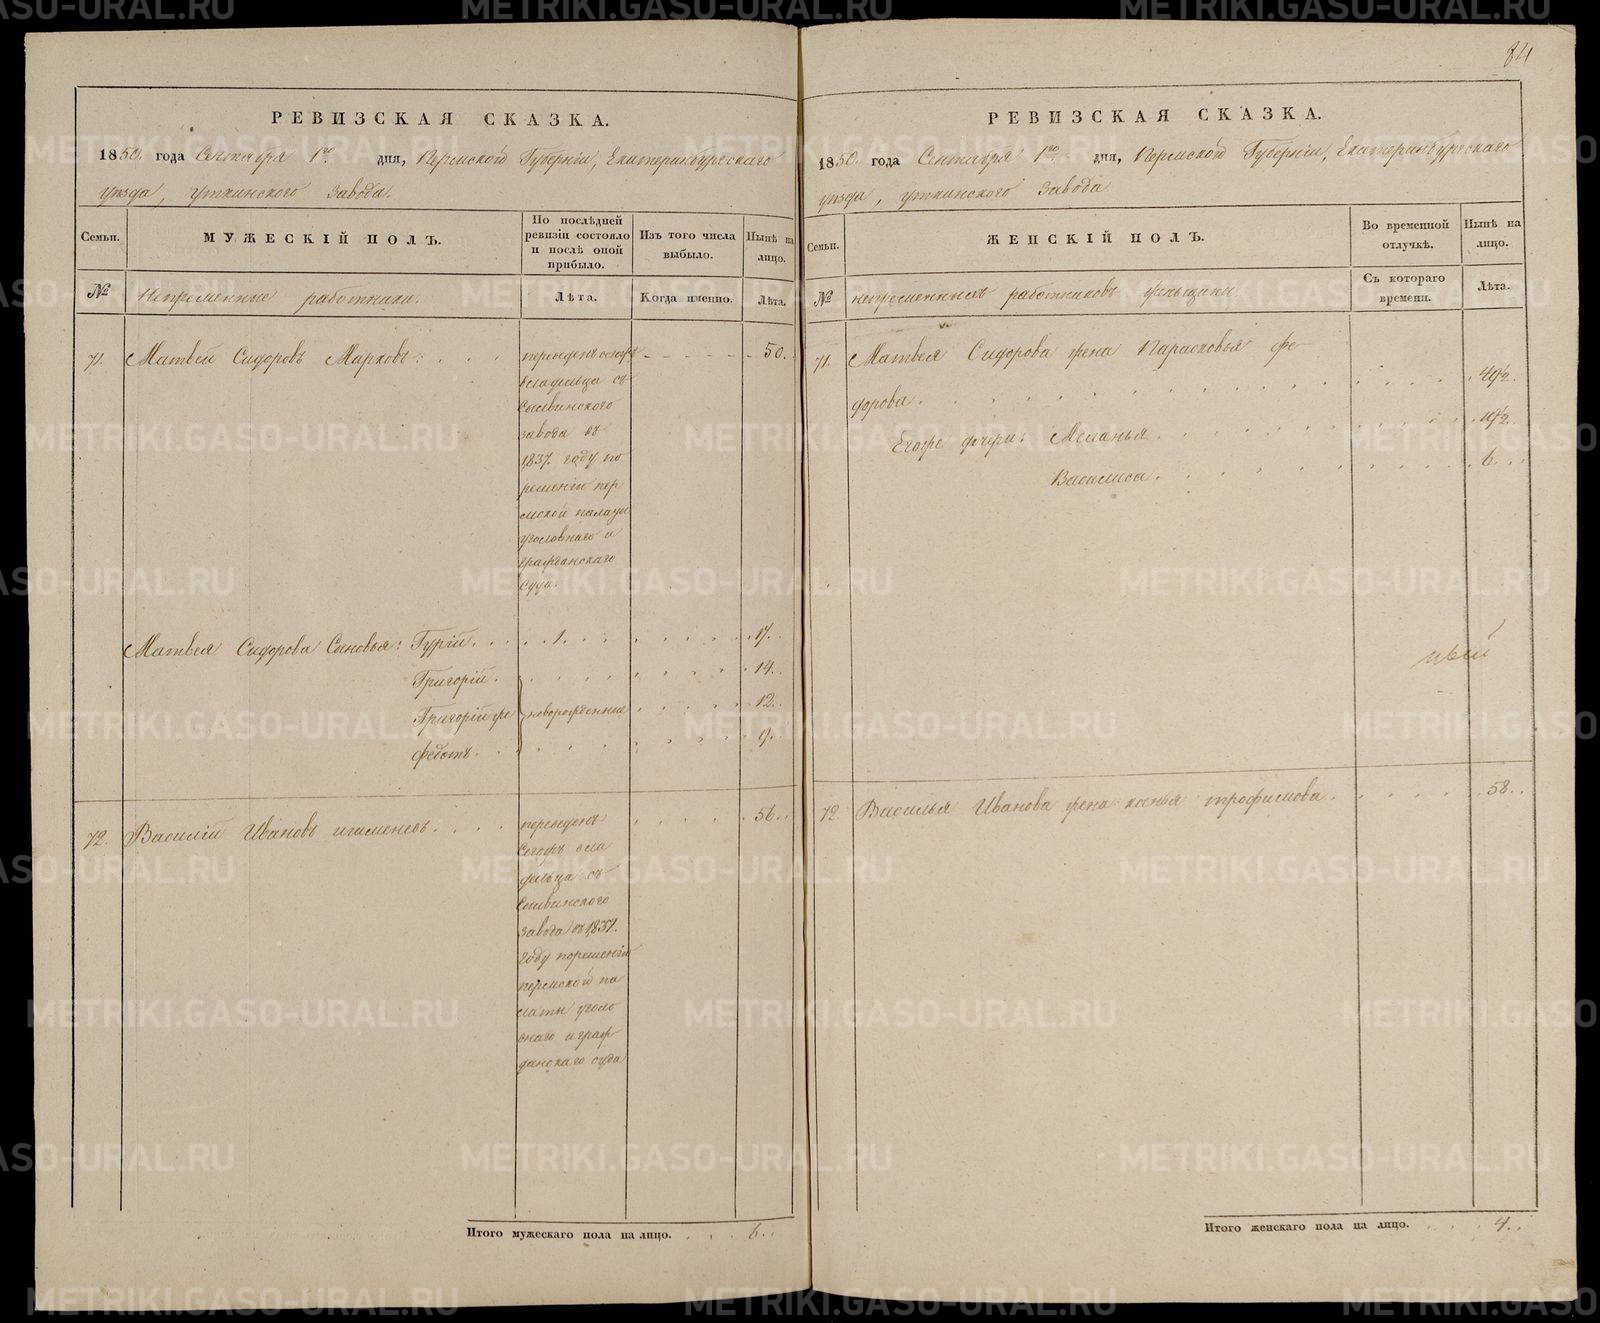 84
РЕВИЗСКАЯ СКАЗКА.
1850. года Сентября 1го дня, Пермской Губернiи, Екатеринбургскаго
уѣзда, Уткинского завода.
Семьи.
МУЖЕСКIЙ ПОЛЪ.
По послѣдней
ревизiи состояло
и послѣ оной
прибыло.
Изъ того числа
выбыло.
Нынѣ на
лицо.
№
Непременные работники.
Лѣта.
Когда именно.
Лѣта.
71. Матвей Сидоровъ Марковъ: 50.
переведенъ отъ
владельца съ
Сылвинского
завода въ
1837. году по
решенiю пер
мской палаты
уголовнаго и
гражданскаго
Суда.
Матвея Сидорова Сыновья: Гурiй. 1. 17.
Григорiй. 14.
Григорiй же новорожденные 12.
Федотъ. 9.
72. Василiй Ивановъ 56.
переведенъ
вла
дельца съ
Сылвинского
завода въ 1837.
году порешенiю
пермской па
латы уголо
внаго и граж
данскаго суда
Итого мужескаго пола на лицо. 6.
РЕВИЗСКАЯ СКАЗКА.
1850. года Сентября 1го дня, Пермской Губернiи, Екатеринбургскаго
уѣзда, Уткинского завода
Семьи.
ЖЕНСКIЙ ПОЛЪ.
Во временной
отлучкѣ.
Нынѣ на
лицо.
№
непременныхъ работниковъ женьщины
Съ котораго
времени.
Лѣта.
71. Матвея Сидорова жена Парасковья Фе
дорова. 49½.
Егоже дочери: Меланья. 19½.
Василиса. 6.
72 Василья Иванова жена ксенья трофимова. 58.
Итого женскаго пола на лицо. 4.
METRIKI.GASO-URAL.RU